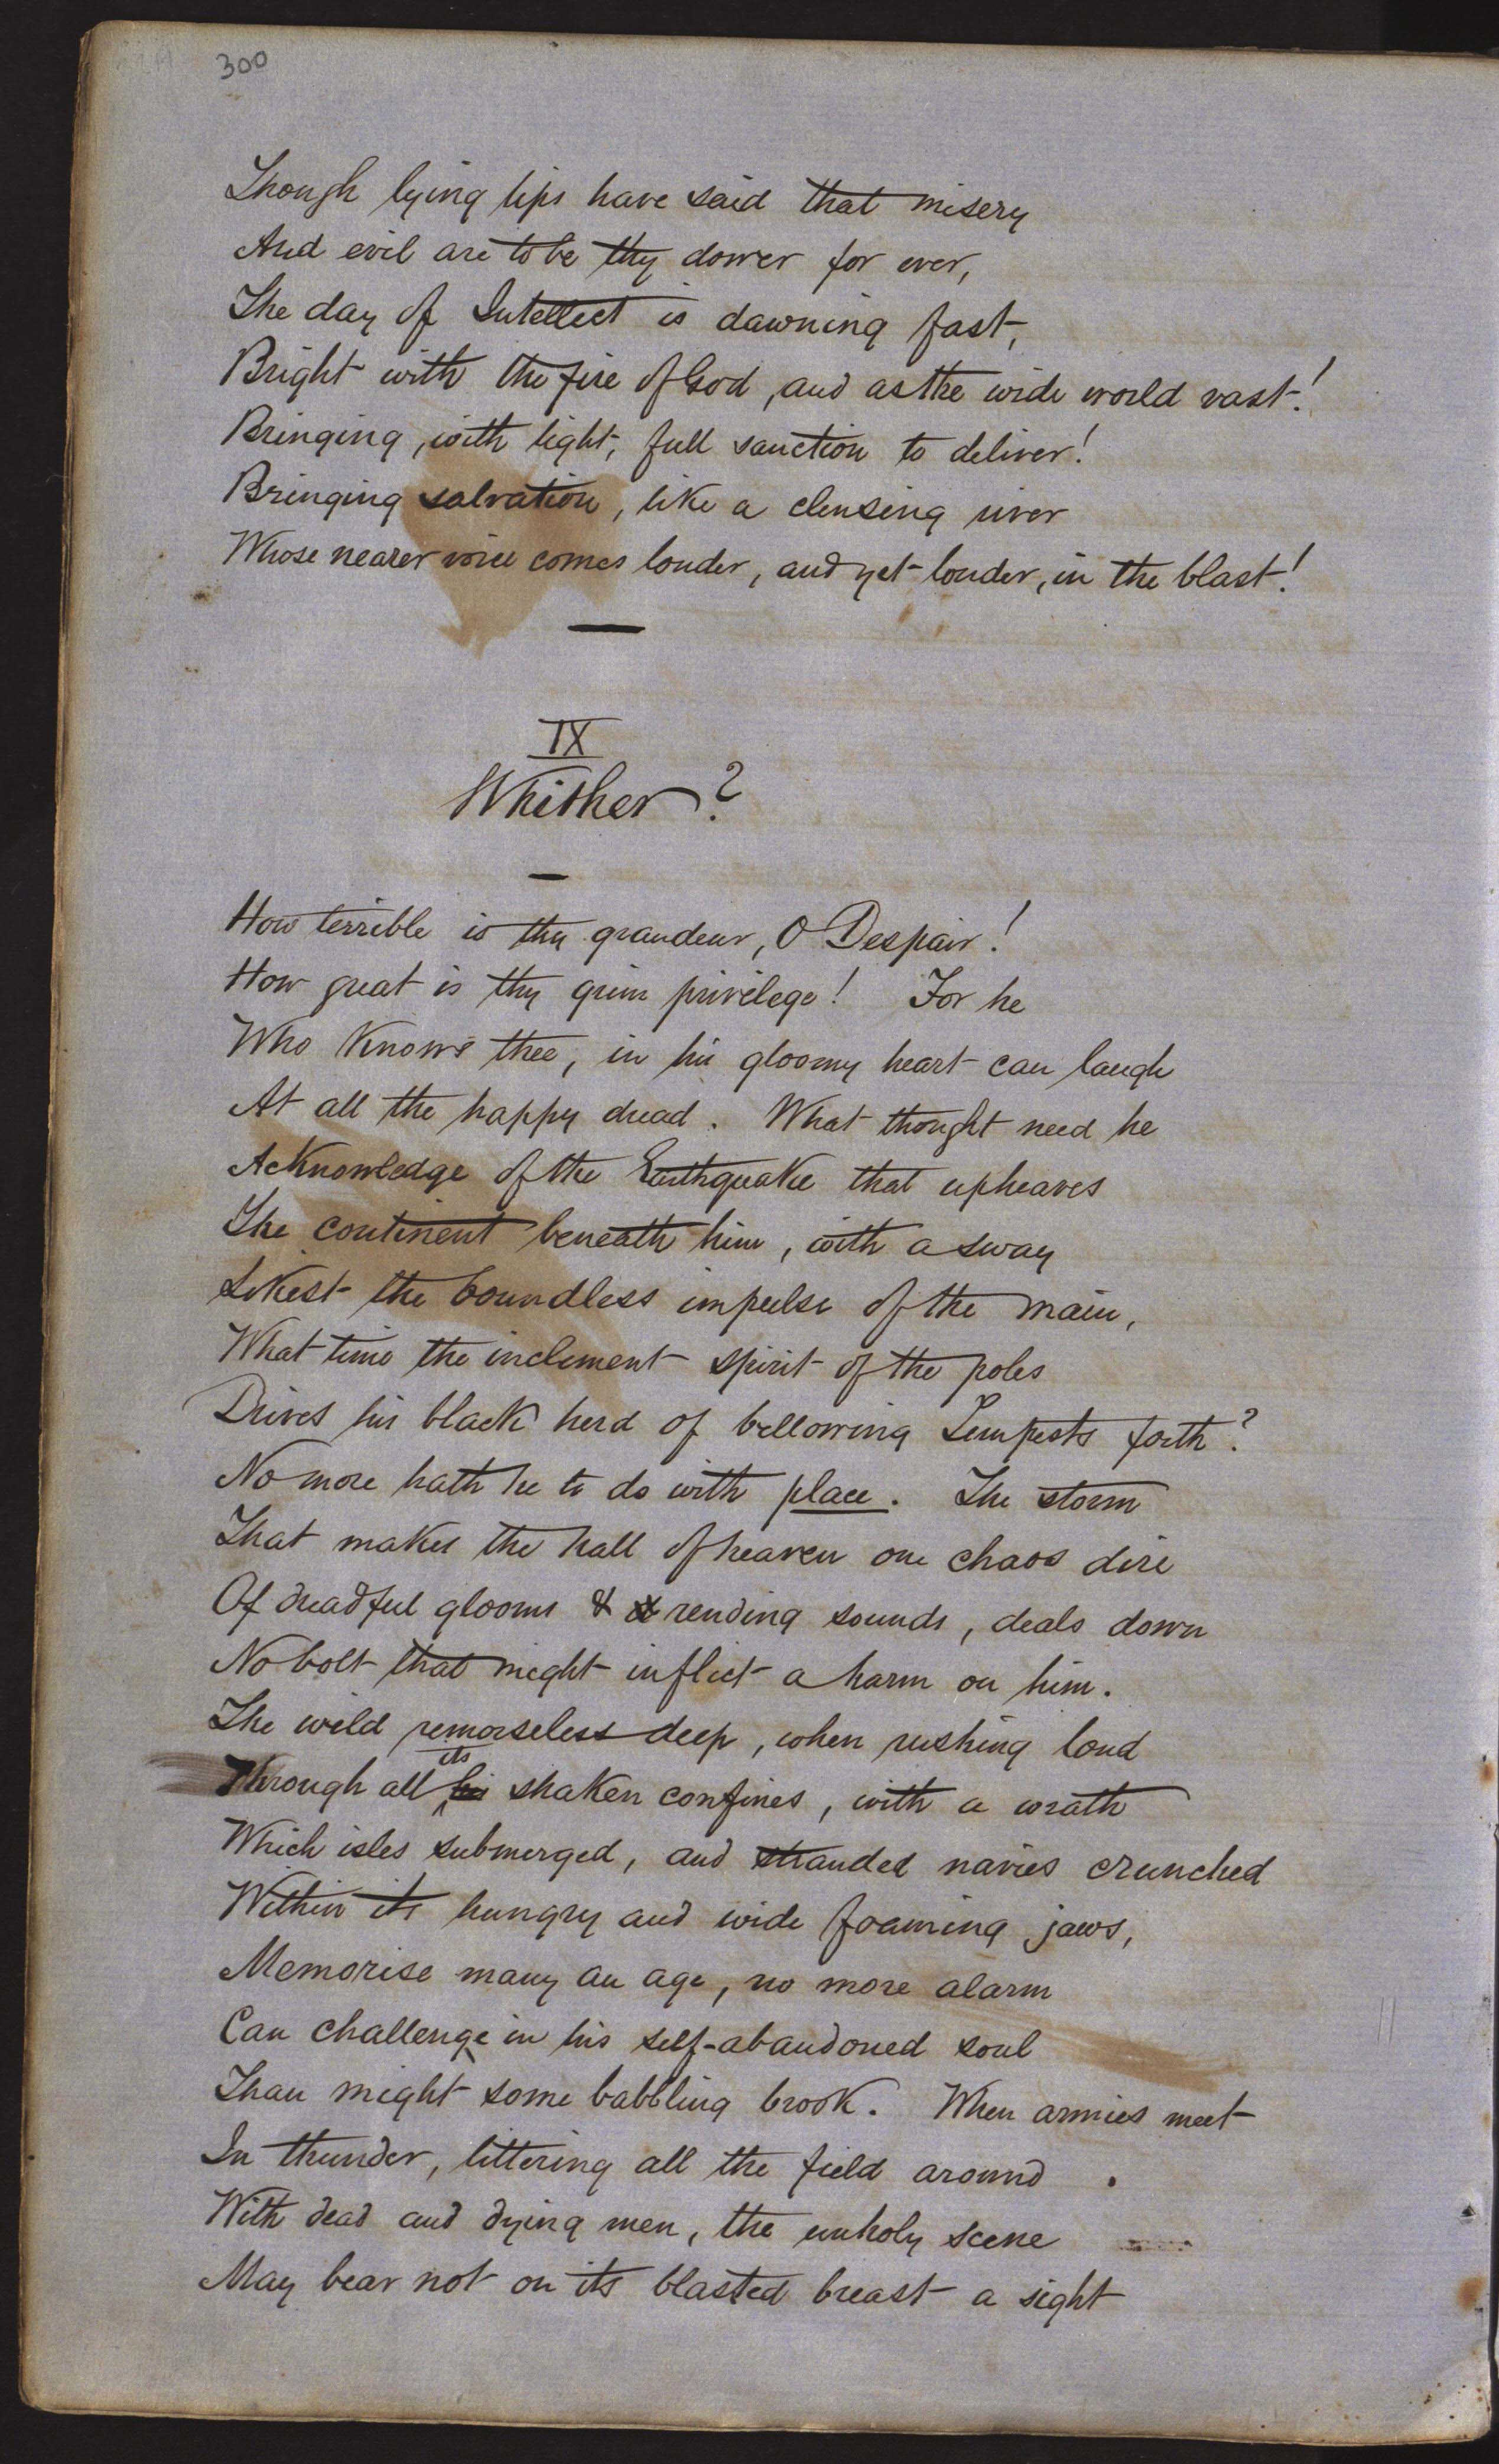 300
Though lying lips have said that misery
And evil are to be thy dower for ever,
The day of Intellect is dawning fast,
Bright with the fire of God, and as the wide world vast!
Bringing, with light, full sanction to deliver!
Bringing salvation, like a clensing river
Whose nearer voice comes louder, and yet louder, in the blast!
IX
Whither?
How terrible is thy grandeur, O Despair!
How great is thy grim privilege! For he
Who knows thee, in his gloomy heart can laugh
At all the happy dread. What thought need he
Acknowledge of the Earthquake that upheaves
The continent beneath him, with a sway
Likest the boundless impulse of the main,
What time the inclement spirit of the poles
Drives his black herd of bellowing Tempests forth?
No more hath he to do with place. The storm
That makes the hall of heaven one chaos dire
Of dreadful glooms & rending sounds, deals down
No bolt that might inflict a harm on him.
The wild remorseless deep, when rushing loud
Through all his its shaken confines, with a wrath
Which isles submerged, and stranded navies crunched
Within its hungry and wide foaming jaws,
Memorise many an age, no more alarm
Can challenge in his self-abandoned soul
Than might some babbling brook. When armies meet
In thunder, littering all the field around
With dead and dying men, the unholy scene
May bear not on its blasted breast a sight